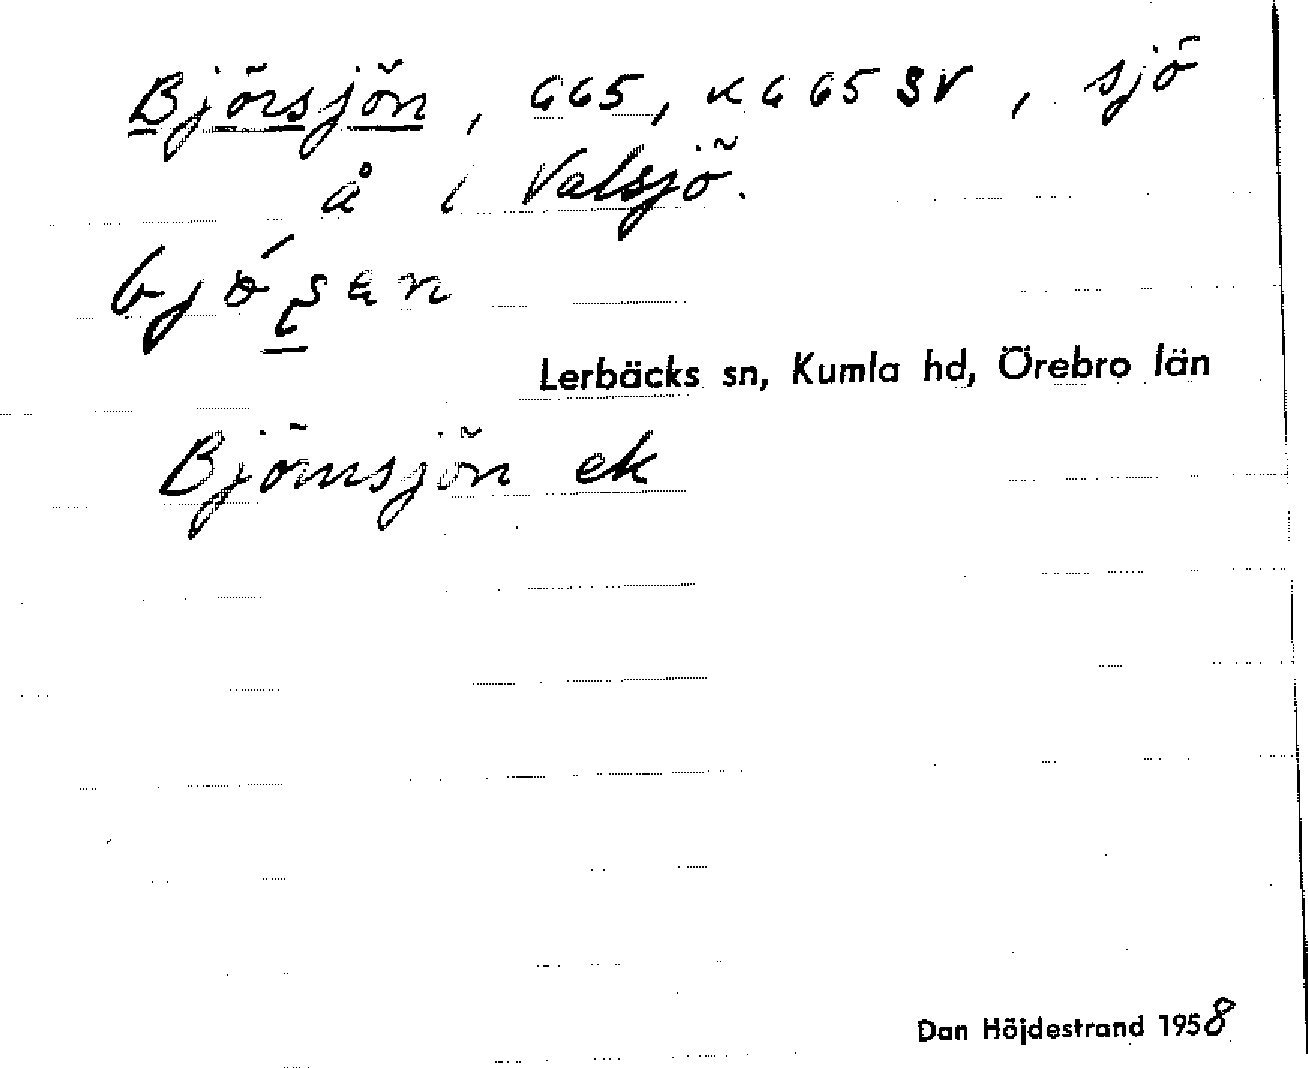 Björsjön, G65, KG65SV, sjö
å i Valsjö.
Lerbäcks sn, Kumla hd, Örebro län
Björnsjön ek
Dan Höjdestrand 1958